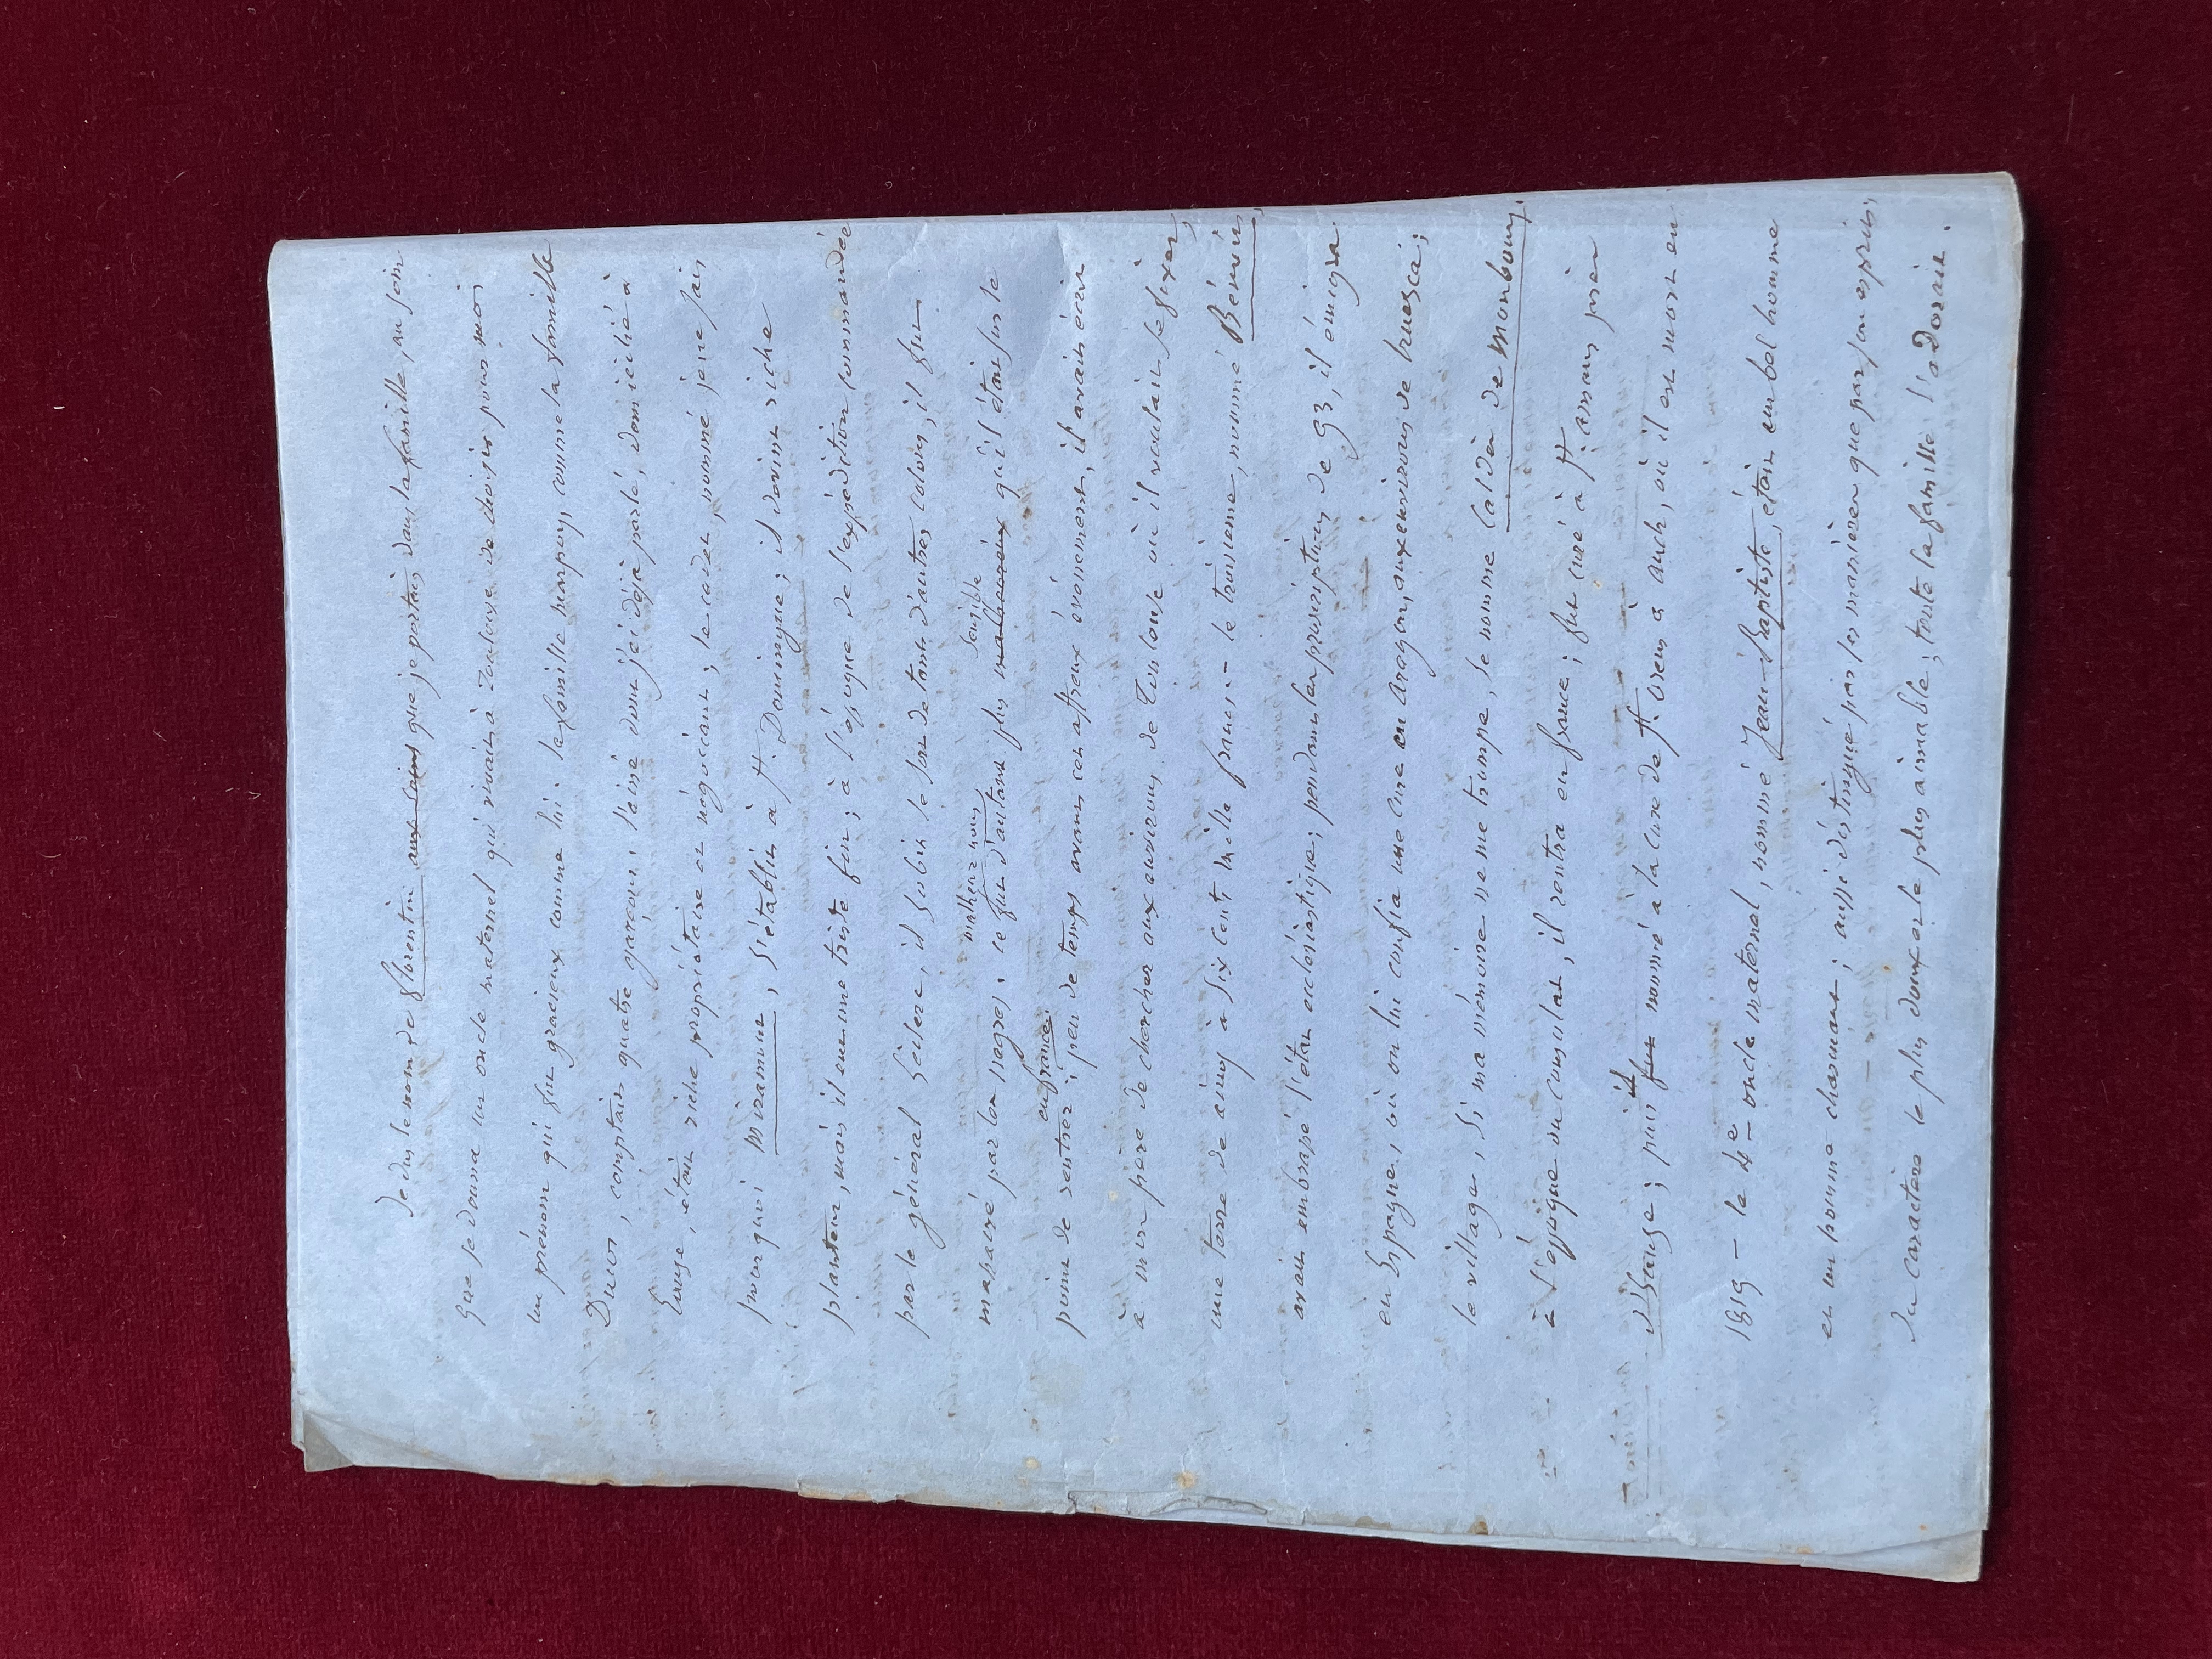 Je dus le nom de florentin aux soins que je portais dans la famille, au soin
que se donna un oncle maternel qui vivait à Toulouse de choisir pour moi
un prénom qui fut gracieux comme lui : la famille
Ducos, comptait quatre garçons : l'ainé dont j'ai déjà parlé, domicilié à
Eauze, était riche propriétaire et négociant ; le cadet, nommé je ne sais
pourquoi Miramur, s'établit à St. Domingue ; il devint riche
planteur, mais il eut une triste fin ; à l'époque de l'expédition commandée
par le général Leclerc, il subit le sort de tant d'autres colons, il fut
malheur nous sensible
massacré par les nègres. ce fut d'autant plus malheureux qu'il était sur le
en france
point de rentrer ; peu de temps avant cet affreux évènement, il avait écrit
à mon père de chercher aux environs de Toulouse où il voulait se fixer,
une terre de cinq à six cent mille francs. – le troisième, nommé Bénoit,
avait embrassé l'état ecclésiastique ; pendant les proscriptions de 93, il émigra
en Espagne, où on lui confia une cure en Aragon, aux environs de huesca ;
le village, si ma mémoire ne me trompe, se nomme Caldès de Monbouy.
à l'époque du consulat, il rentra en france ; fut curé à St. amans près
d'Eauze ; puis il fut nommé à la cure de St. orens à auch, où il est mort en
1819 – le 4e oncle maternel, nommé Jean-Baptiste, était un bel homme
et un homme charmant ; aussi distingué par ses manières que par son esprit,
du caractère le plus doux et le plus aimable ; toute la famille l'adorait.